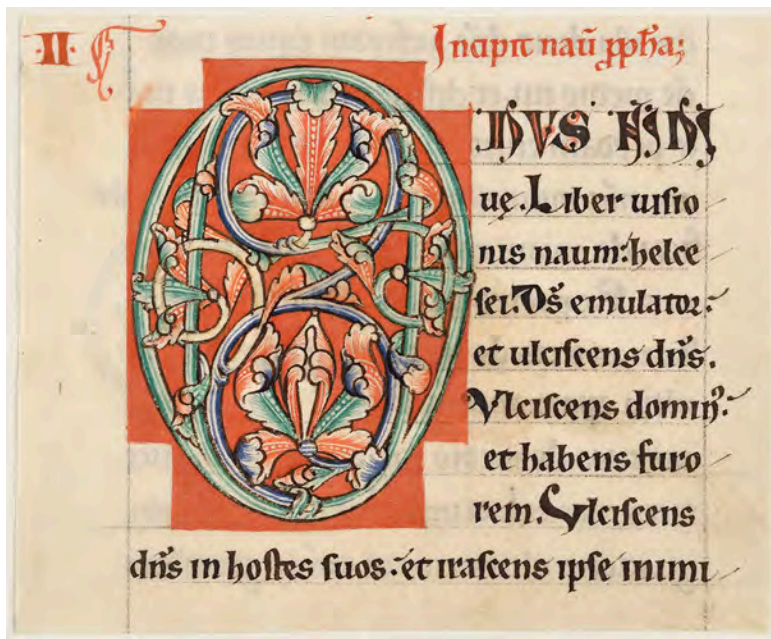 ·II· Incipit naū ꝓph̄a;
ONVS NINI
uę. Liber uisio
nis naum: helce
sei. D̄s emulator:
et ulciscens dn̄s.
Vlciscens domin᷒:
et habens furo
rem. Vlciscens
dn̄s in hostes suos: et irascens ipse inimi